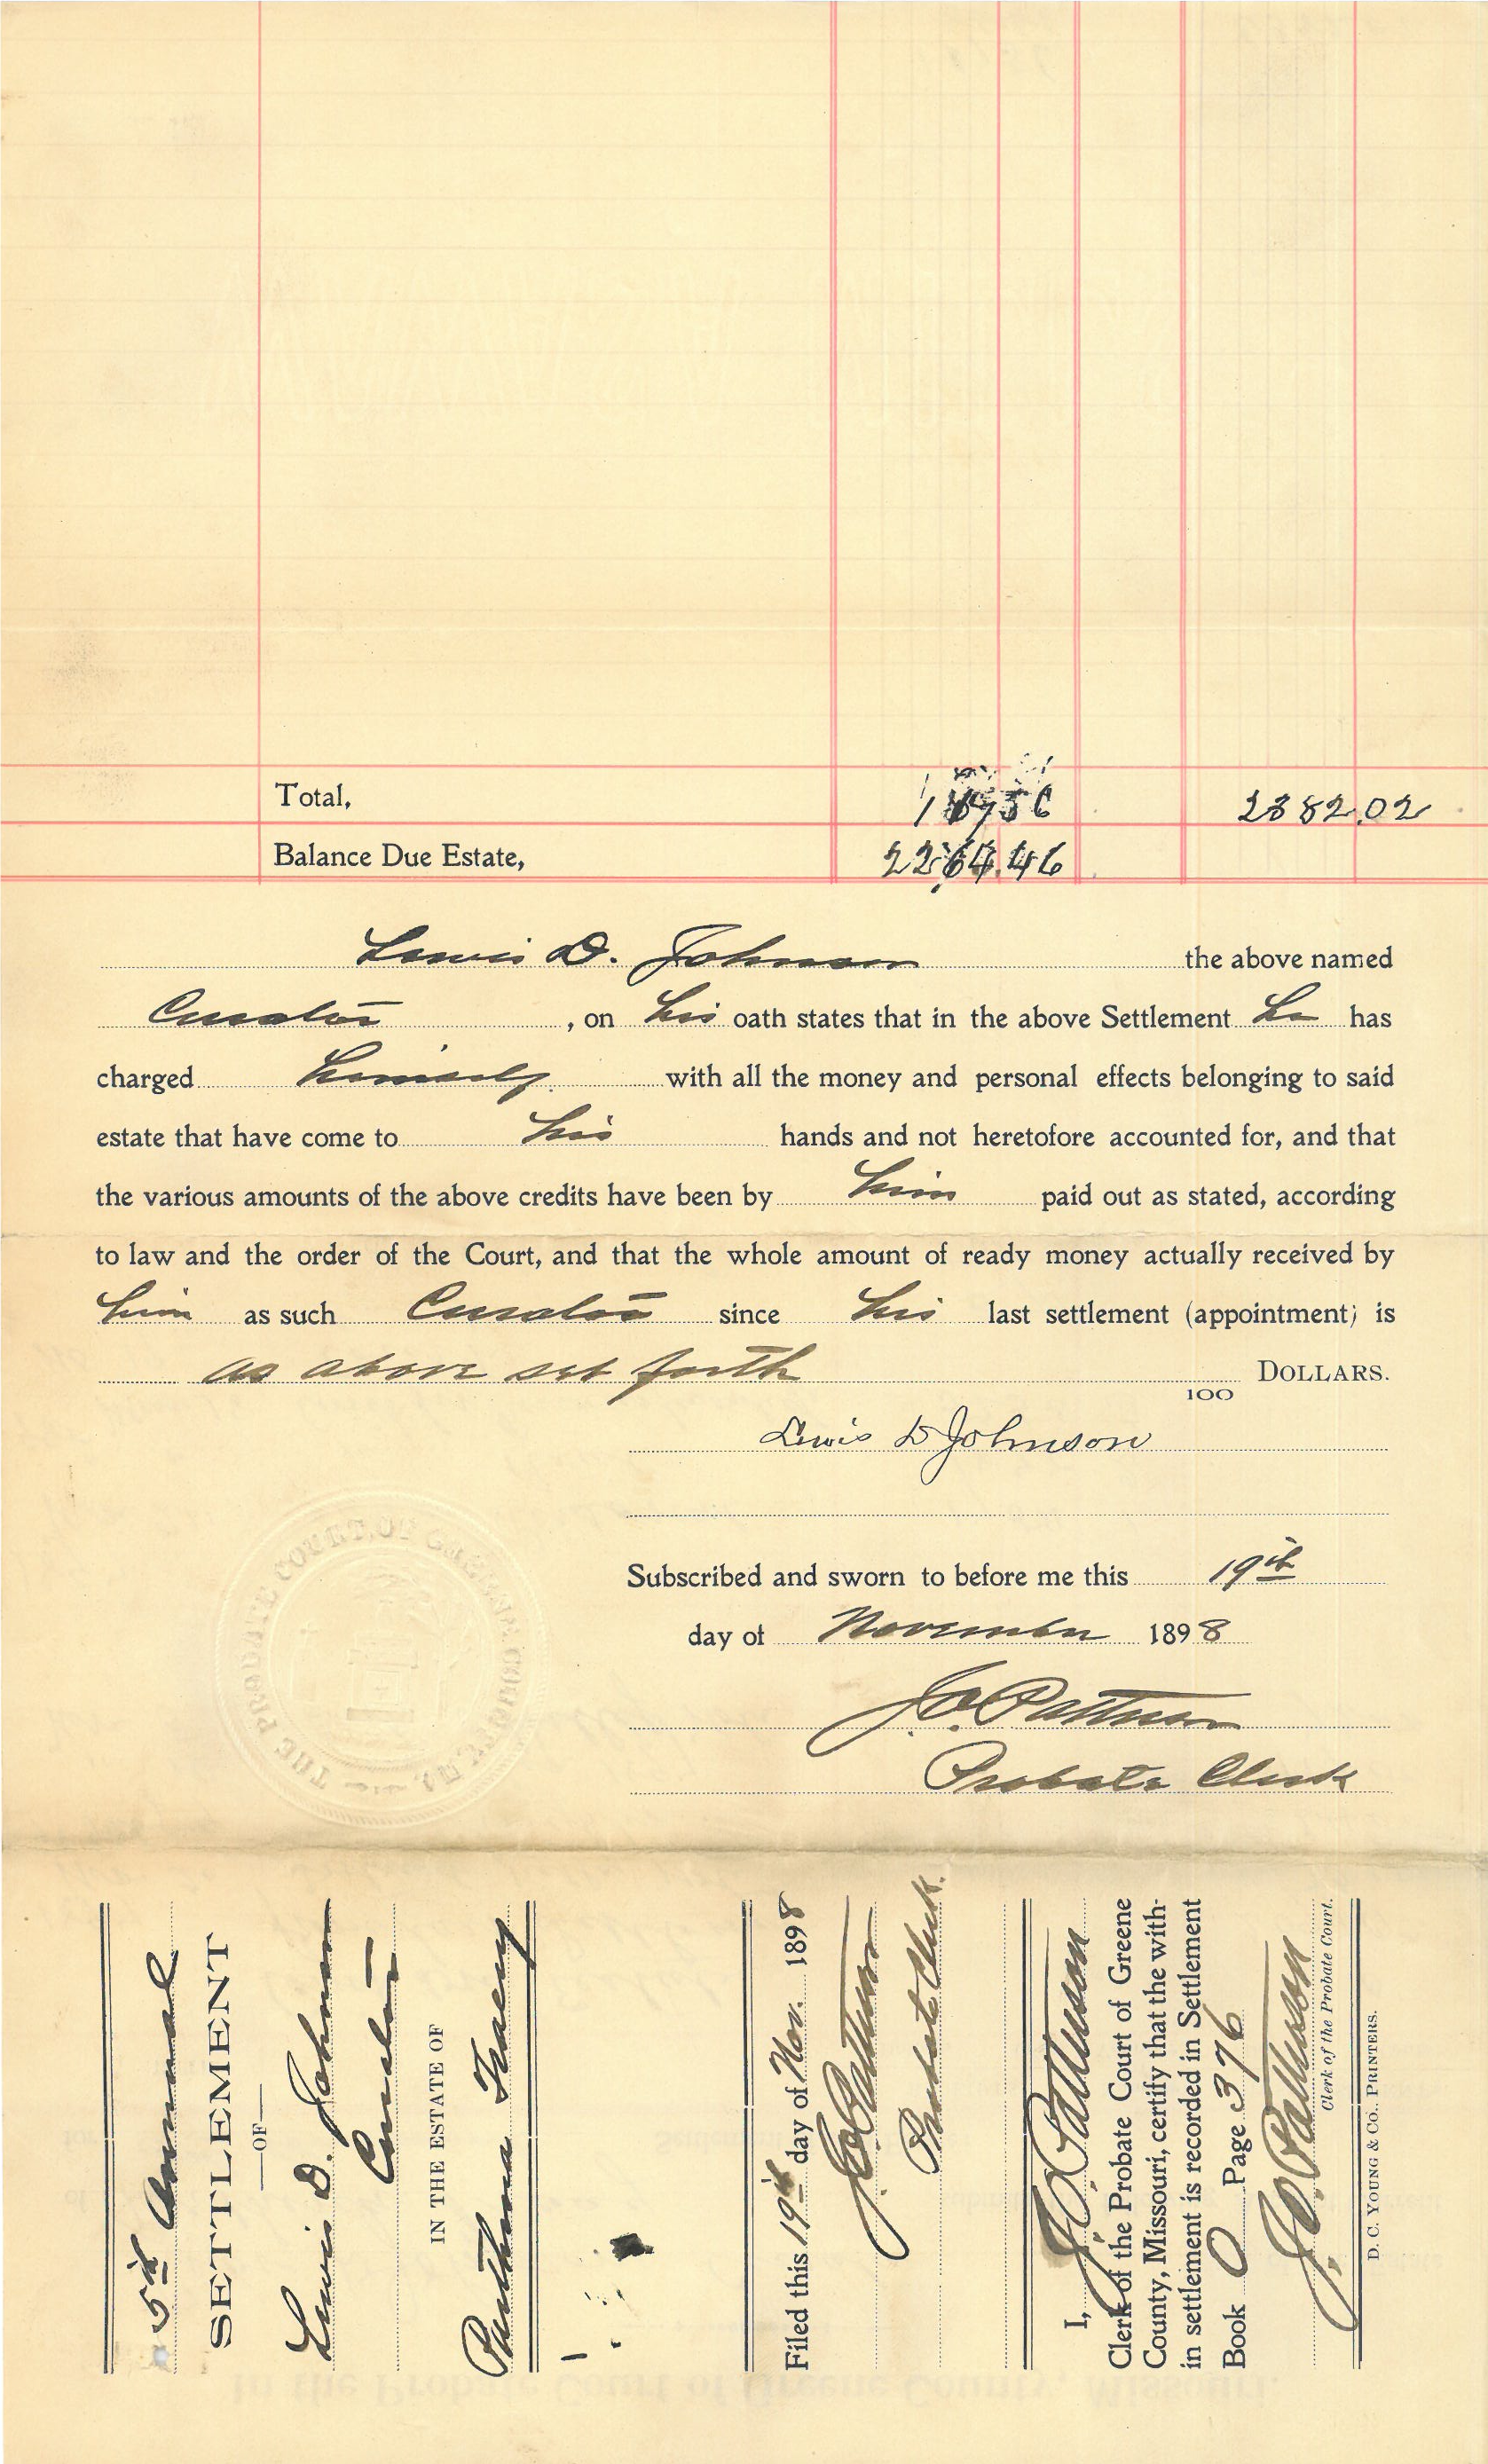 Total, 2382.02
Balance Due Estate, 2264.46
Lewis D. Johnson the above named
Curator, on his oath states that in the above Settlement he has
charged himself with all the money and personal effects belonging to said
estate that have come to his hands and not heretofore accounted for, and that
the various amounts of the above credits have been by him paid out as stated, according
to law and the order of the Court, and that the whole amount of ready money actually received by
him as such Curator since his last settlement (appointment) is
as above set forth 100 DOLLARS.
Lewis D Johnson
THE PROBATE COURT OF GREENE COUNTY
Subscribed and sworn to before me this 19th
day of November 1898
J.O. Patterson
Probate Clerk
5th Annual
SETTLEMENT
—OF—
Lewis D. Johnson
Curator
IN THE ESTATE OF
Tracey
Filed this 19th day of Nov. 1898
J.O. Patterson
Probate Clerk.
I, J.O. Patterson
Clerk of the Probate Court of Greene
County, Missouri, certify that the with-
in settlement is recorded in Settlement
Book O Page 376
J.O. Patterson
Clerk of the Probate Court.
D. C. YOUNG & CO., PRINTERS.